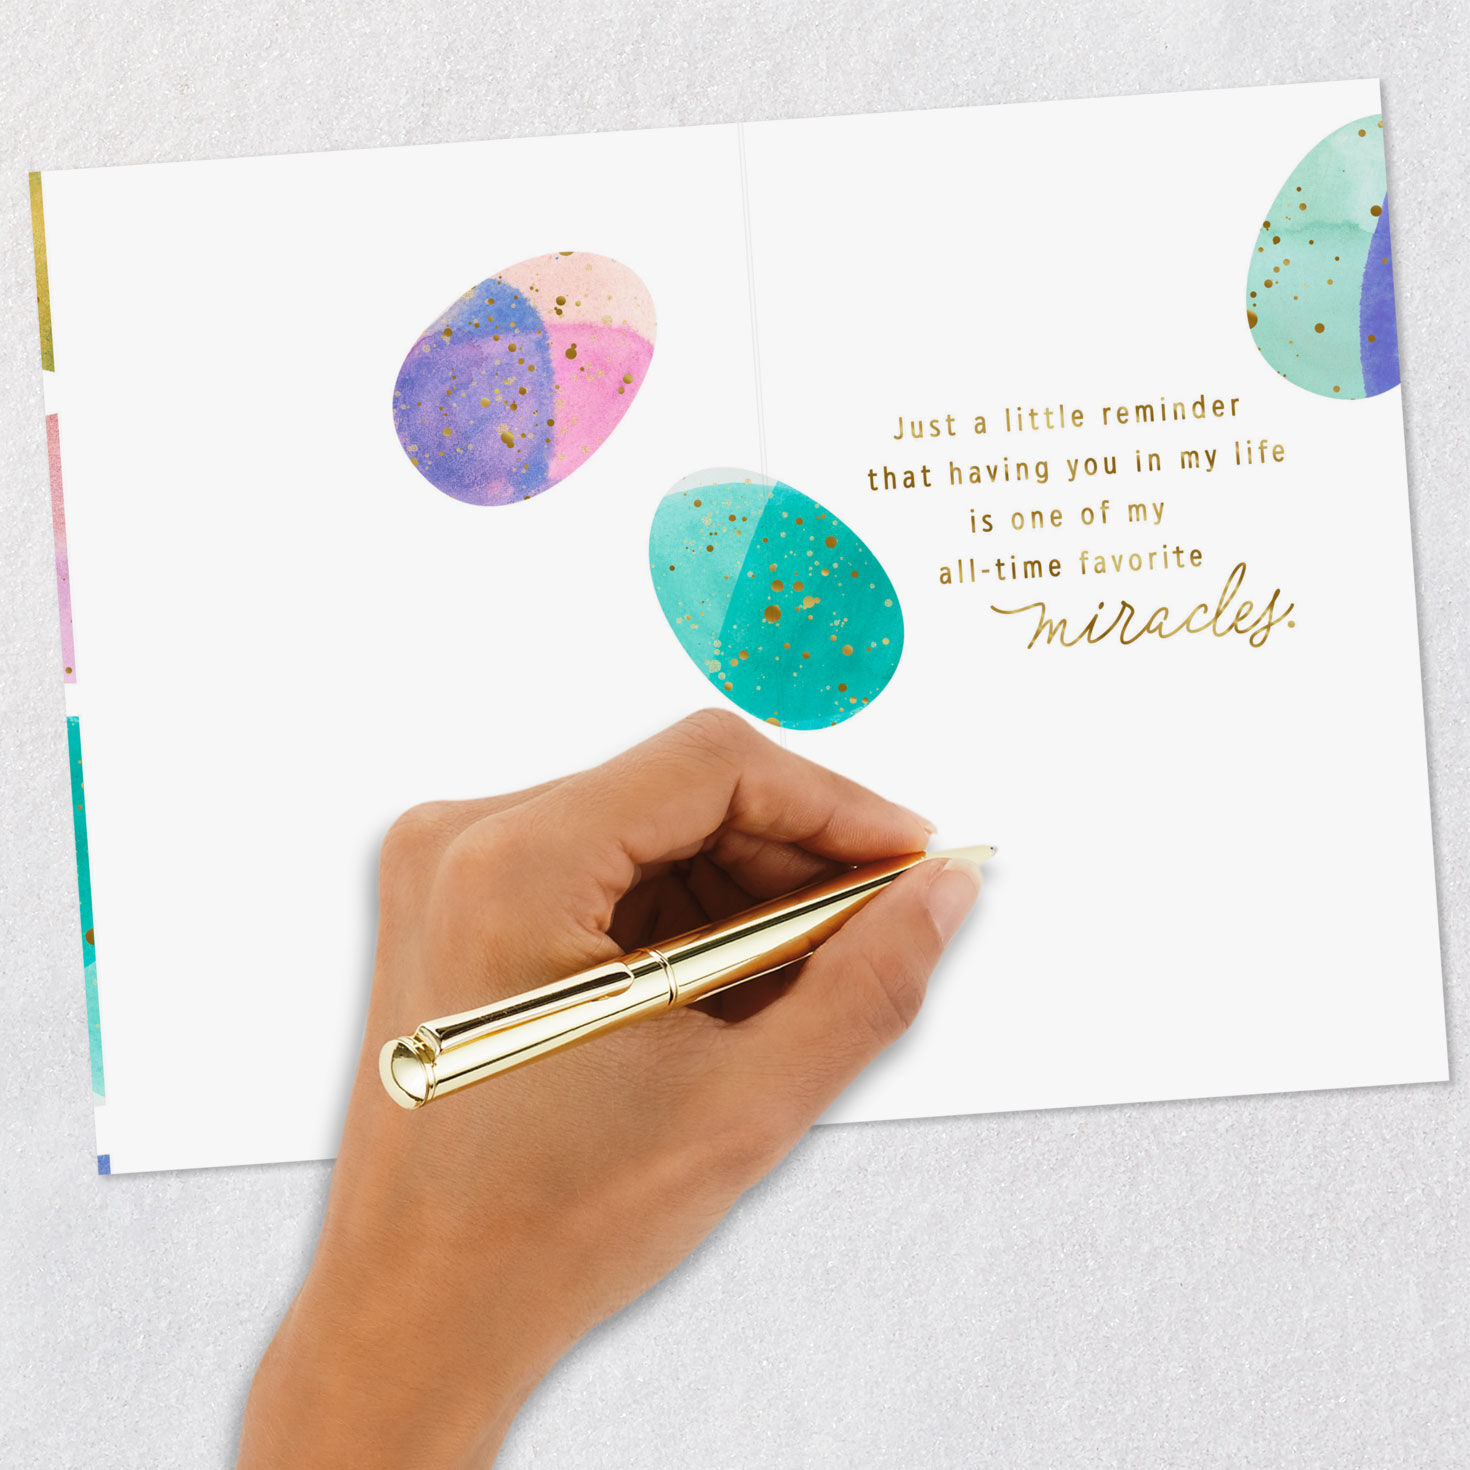 Just a little reminder
that having you in my life
is one of my
all-time favorite
miracles.